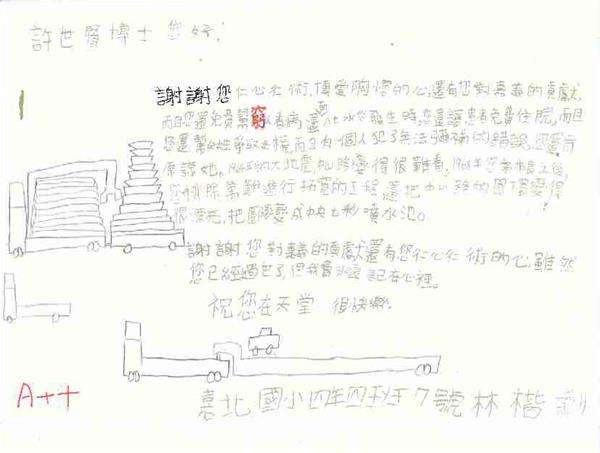 許世賢博士您好:
謝謝您仁心仁術,博愛胸懷的心還有您對嘉義的貢獻,
而且您還免費幫窮人看病,還有八七水災發生時,您還讓患者免費住院,而且
您還幫女性爭取工權,而且有個人犯了無法彌補的錯誤,您還肯
原諒她。1964年的大地震,中山路變得很難看。1968年您當市長之後,
您排除萬難進行拓寬的工程,還把中山路的圓環變得
很漂亮,把圓環變成中央七彩噴水池。
謝謝您對嘉義的貢獻還有您仁心仁術的心,雖然
您已經過世了,但我會永遠記在心裡。
祝您在天堂 很快樂。
A++
嘉北國小四年四班7號林楷